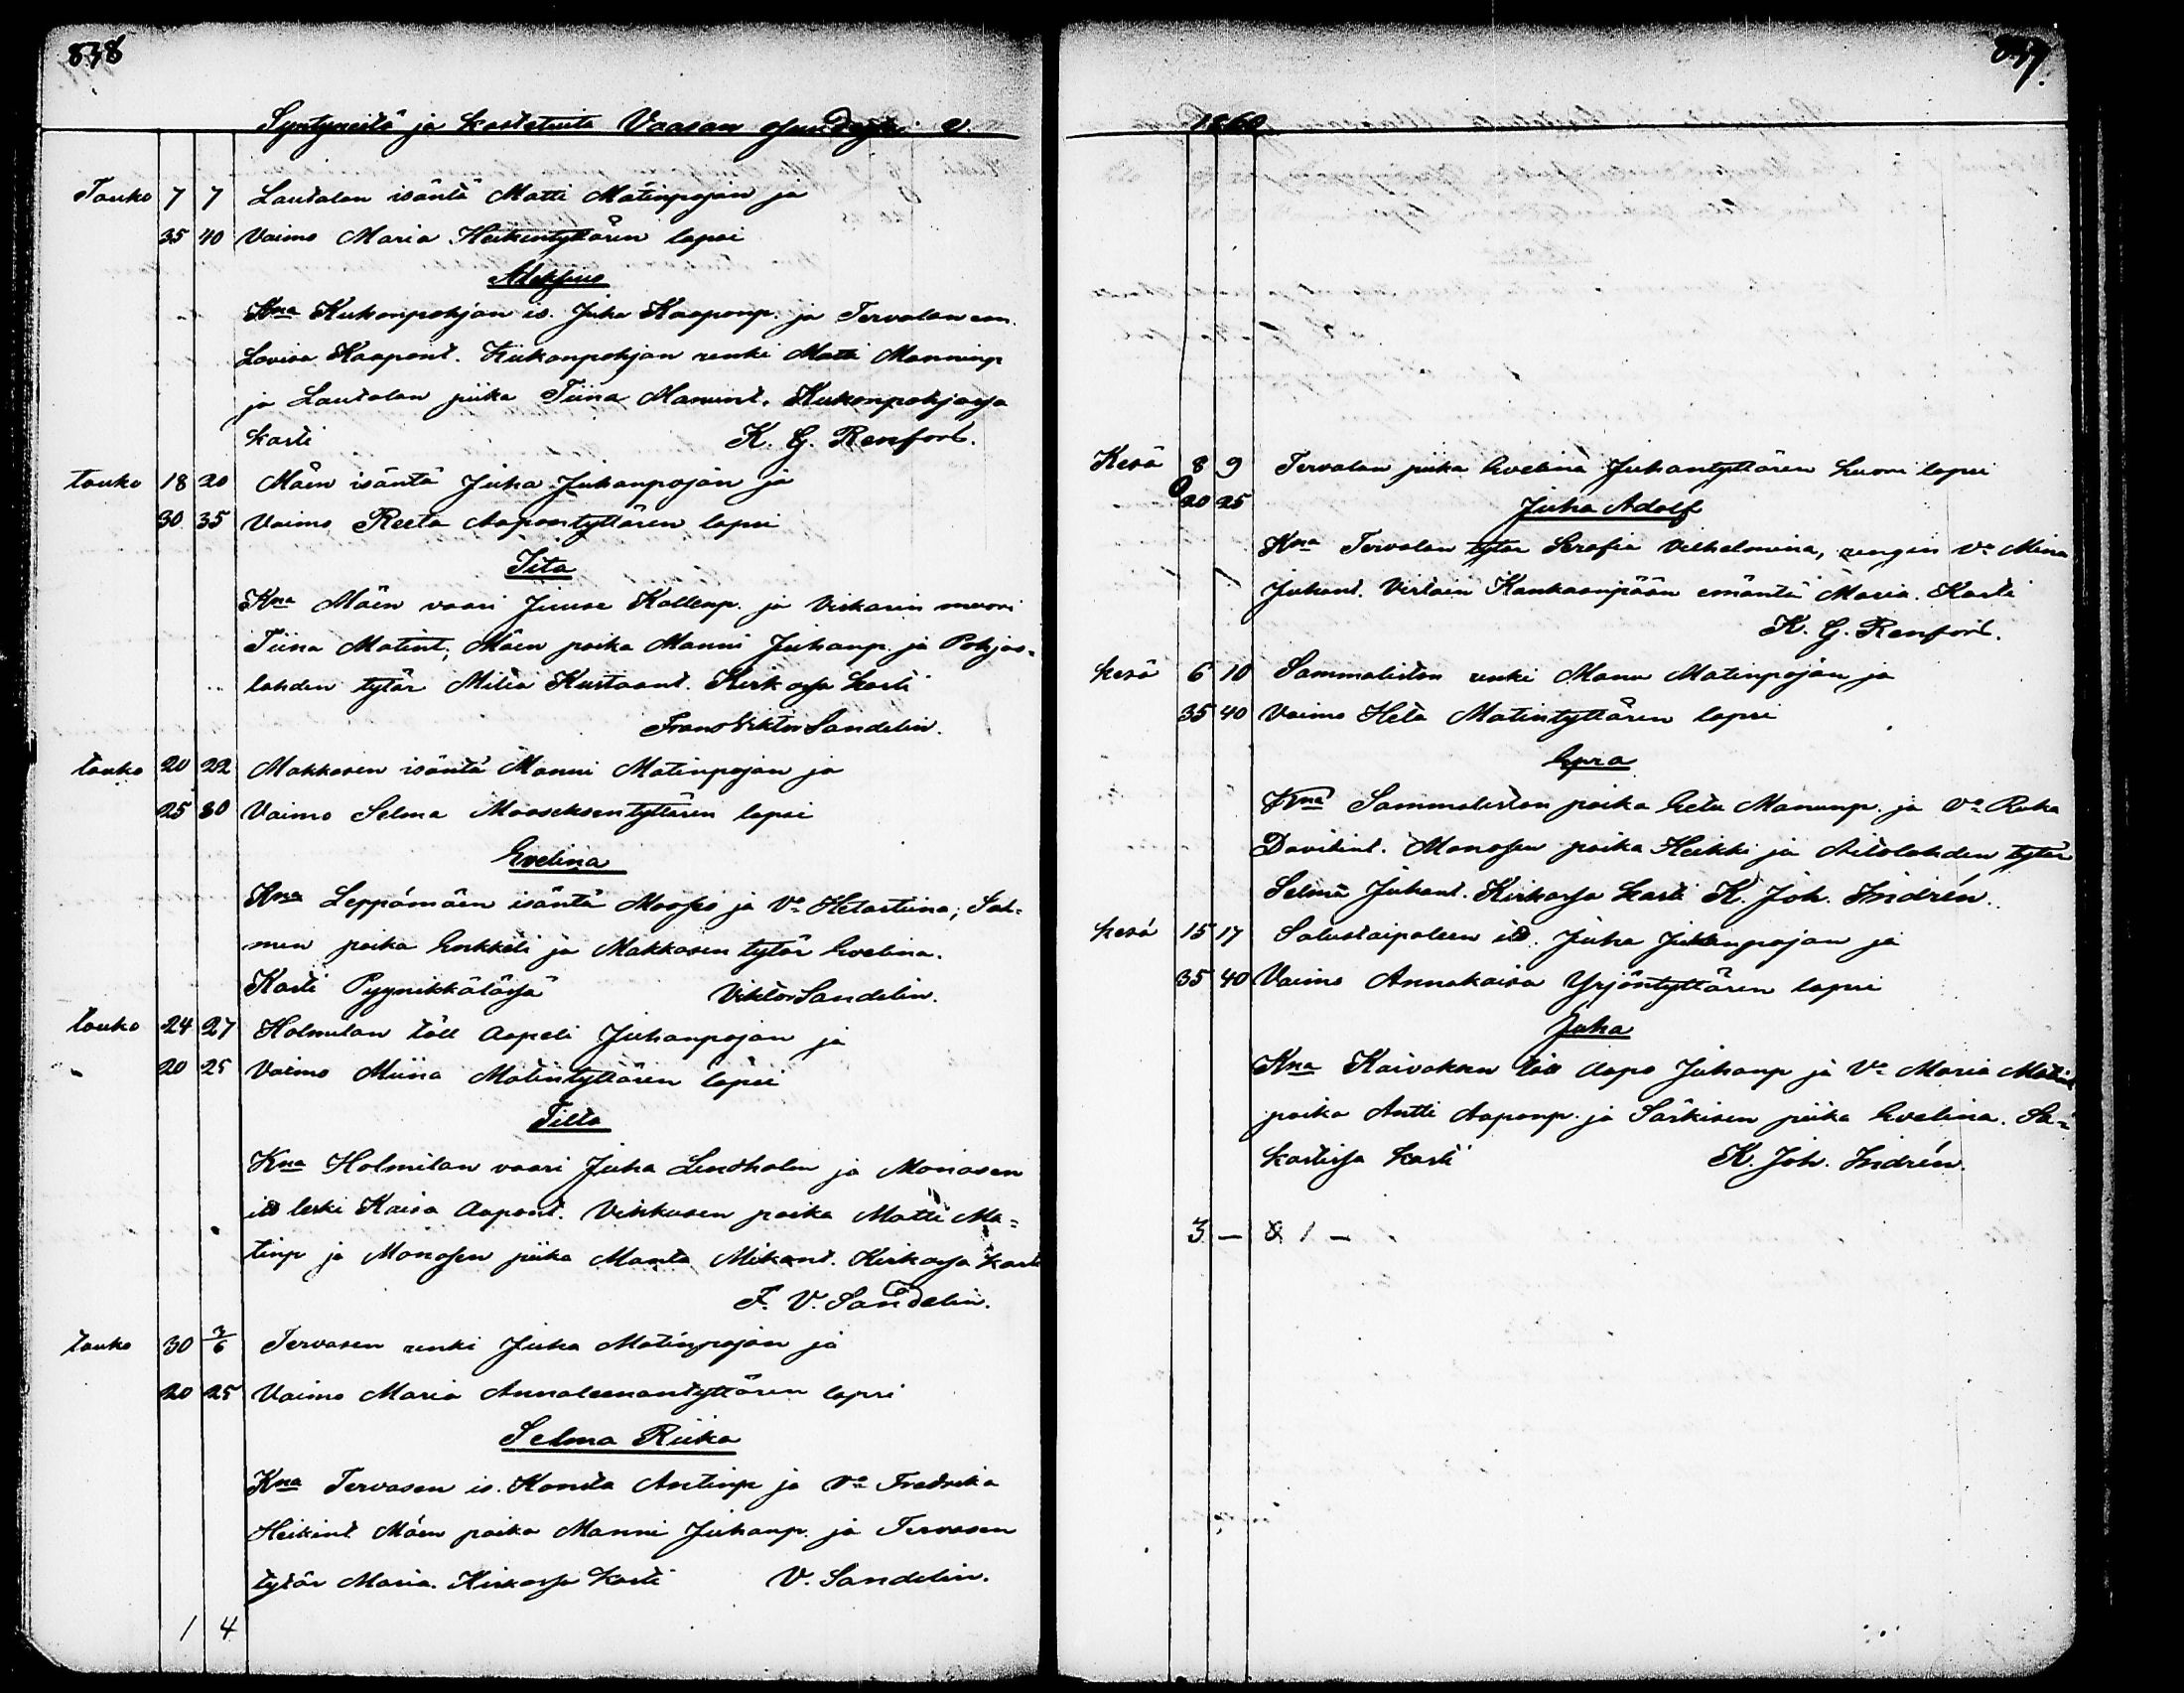 838
Syntyneitä ja kastetuita Vaasan v.
Touko 7 7 Lautalan isäntä Matti Matinpojan ja
35 40 Vaimo Maria Heikintyttären lapsi
Aleksius
Kna Kukonpohjan is. Juha Kaaponp. ja Tervalan em.
Lovisa Kaapont. Kukonpohjan renki Matti Manninp
ja Lautalan piika Tiina Manunt. Kukonpohjassa
kasti K. G. Renfors.
touko 18 20 Mäen isäntä Juha Juhanpojan ja
30 35 Vaimo Reeta Aapontyttären lapsi
Iita
Kna Mäen vaari Juuse Kallenp. ja Viskarin muori
Tiina Matint. Mäen poika Manni Juhanp. ja Pohjas-
lahden tytär Milia Kustaant. Kirkossa kasti
Frans Viktor Sandelin.
touko 20 22 Makkosen isäntä Manni Matinpojan ja
25 30 Vaimo Selma Mooseksentyttären lapsi
Evelina
Kna Leppämäen isäntä Mooses ja Vo Hetastiina; Sal-
men poika Enkkeli ja Makkosen tytär Evelina.
Kasti Pyynikkälässä Viktor Sandelin.
touko 24 27 Holmilan töll Aapeli Juhanpojan ja
20 25 Vaimo Miina Matintyttären lapsi
Tilta
Kna Holmilan vaari Juha Lindholm ja Monosen
is leski Kaisa Aapont. Vihkusen poika Matti Ma-
tinp ja Monosen piika Manta Mikont. Kirkossa kasti
F. V. Sandelin.
touko 30 3/6 Tervasen renki Juha Matinpojan ja
20 25 Vaimo Maria Annaleenantyttären lapsi
Selma Riika
Kna Tervasen is. Konsta Antinp ja Vo Fredrika
Heikint Mäen poika Manni Juhanp. ja Tervasen
tytär Maria. Kirkossa kasti V. Sandelin.
1 4
1860
Kesä 8 9 Tervalan piika Evelina Juhantyttären huoni lapsi
20 25 Juha Adolf
Kna Tervalan tytär Serafia Vilhelmina, rengin Vo Mina
Juhant. Virtain Kankaanpään emäntä Maria. Kasti
K. G. Renfors.
kesä 6 10 Sammaliston renki Manu Matinpojan ja
35 40 Vaimo Heta Matintyttären lapsi
Epra
Kna Sammaliston poika Eetu Manunp. ja Vo Ruka
Davitint. Monosen poika Heikki ja Aitolahden tytär
Selma Juhant. Kirkossa kasti K. Joh. Indrén.
kesä 15 17 Salustaipaleen is. Juha Juhanpojan ja
35 40 Vaimo Annakaisa Yrjöntyttären lapsi
Juha
Kna Kaivoksen töll Aapo Juhanp ja Vo Maria Matint
poika Antti Aaponp. ja Särkisen piika Evelina. Sa-
kastissa kasti K. Joh. Indrén.
3 — & 1 —